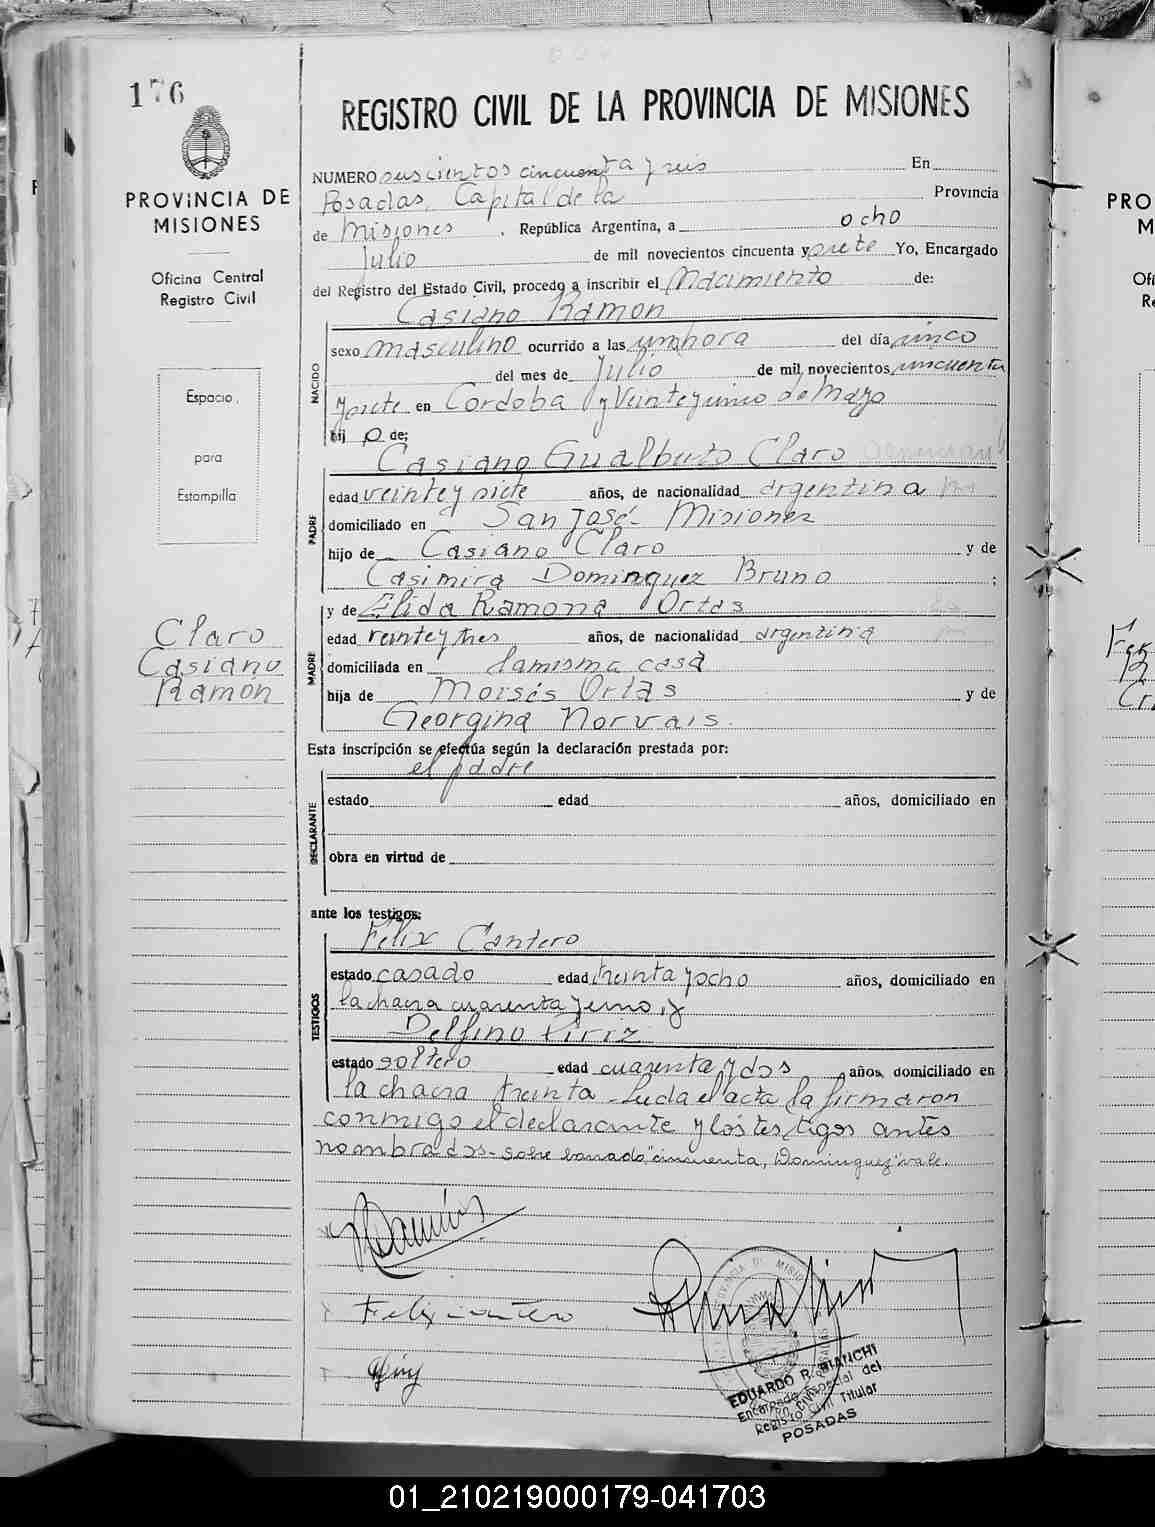 176
PROVINCIA DE
MISIONES
Oficina Central
Registro Civil
Espacio
para
Estampilla
Claro
Casiano
Ramón
REGISTRO CIVIL DE LA PROVINCIA DE MISIONES
NUMERO seiscientos cincuenta y seis En
Posadas, Capital de la Provincia
de Misiones, República Argentina, a ocho
Julio de mil novecientos cincuenta y siete Yo, Encargado
del Registro del Estado Civil, procedo a inscribir el Nacimiento de:
Casiano Ramon
NACIDO
sexo masculino ocurrido a las una hora del día cinco
del mes de Julio de mil novecientos cincuenta
y siete en Cordoba y Veinte y cinco de Mayo
hij o de:
Casiano Gualberto Claro
PADRE
edad veinte y siete años, de nacionalidad argentina
domiciliado en San José - Misiones
hijo de Casiano Claro y de
Casimira Dominguez Bruno ;
y de Elida Ramona Ortas
MADRE
edad veinte y tres años, de nacionalidad argentina
domiciliada en la misma casa
hija de Moisés Ortas y de
Georgina Norvais.
Esta inscripción se efectúa según la declaración prestada por:
el padre
DECLARANTE
estado edad años, domiciliado en
obra en virtud de
ante los testigos:
Felix Cantero
TESTIGOS
estado casado edad treinta y ocho años, domiciliado en
la chacra cuarenta y uno, y
Delfino Piriz
estado soltero edad cuarenta y dos años, domiciliado en
la chacra treinta - Leida el acta la firmaron
conmigo el declarante y los testigos antes
nombrados - sobre borrado "cincuenta, Dominguez" vale.
Felix cantero
PROVINCIA DE MISIONES
EDUARDO R. BIANCHI
Encargado Especial del
Registro Civil Titular
POSADAS
PRO
M
Ofi
Re
01_210219000179-041703